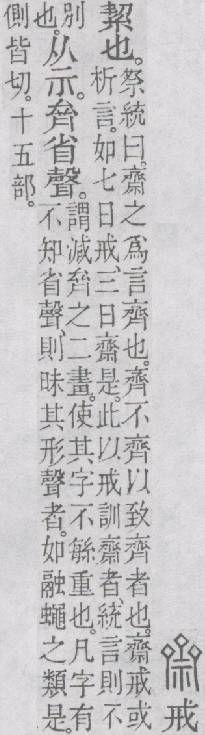 戒
絜也。祭統曰。齋之爲言齊也。齊不齊以致齊者也。齋戒或
析言。如七日戒、三日齋是。此以戒訓齋者、統言則不
別
也。从示。齊省聲。謂減齊之二畫。使其字不緐重也。凡字有
不知省聲、則昧其形聲者。如融蠅之類是。
側皆切。十五部。